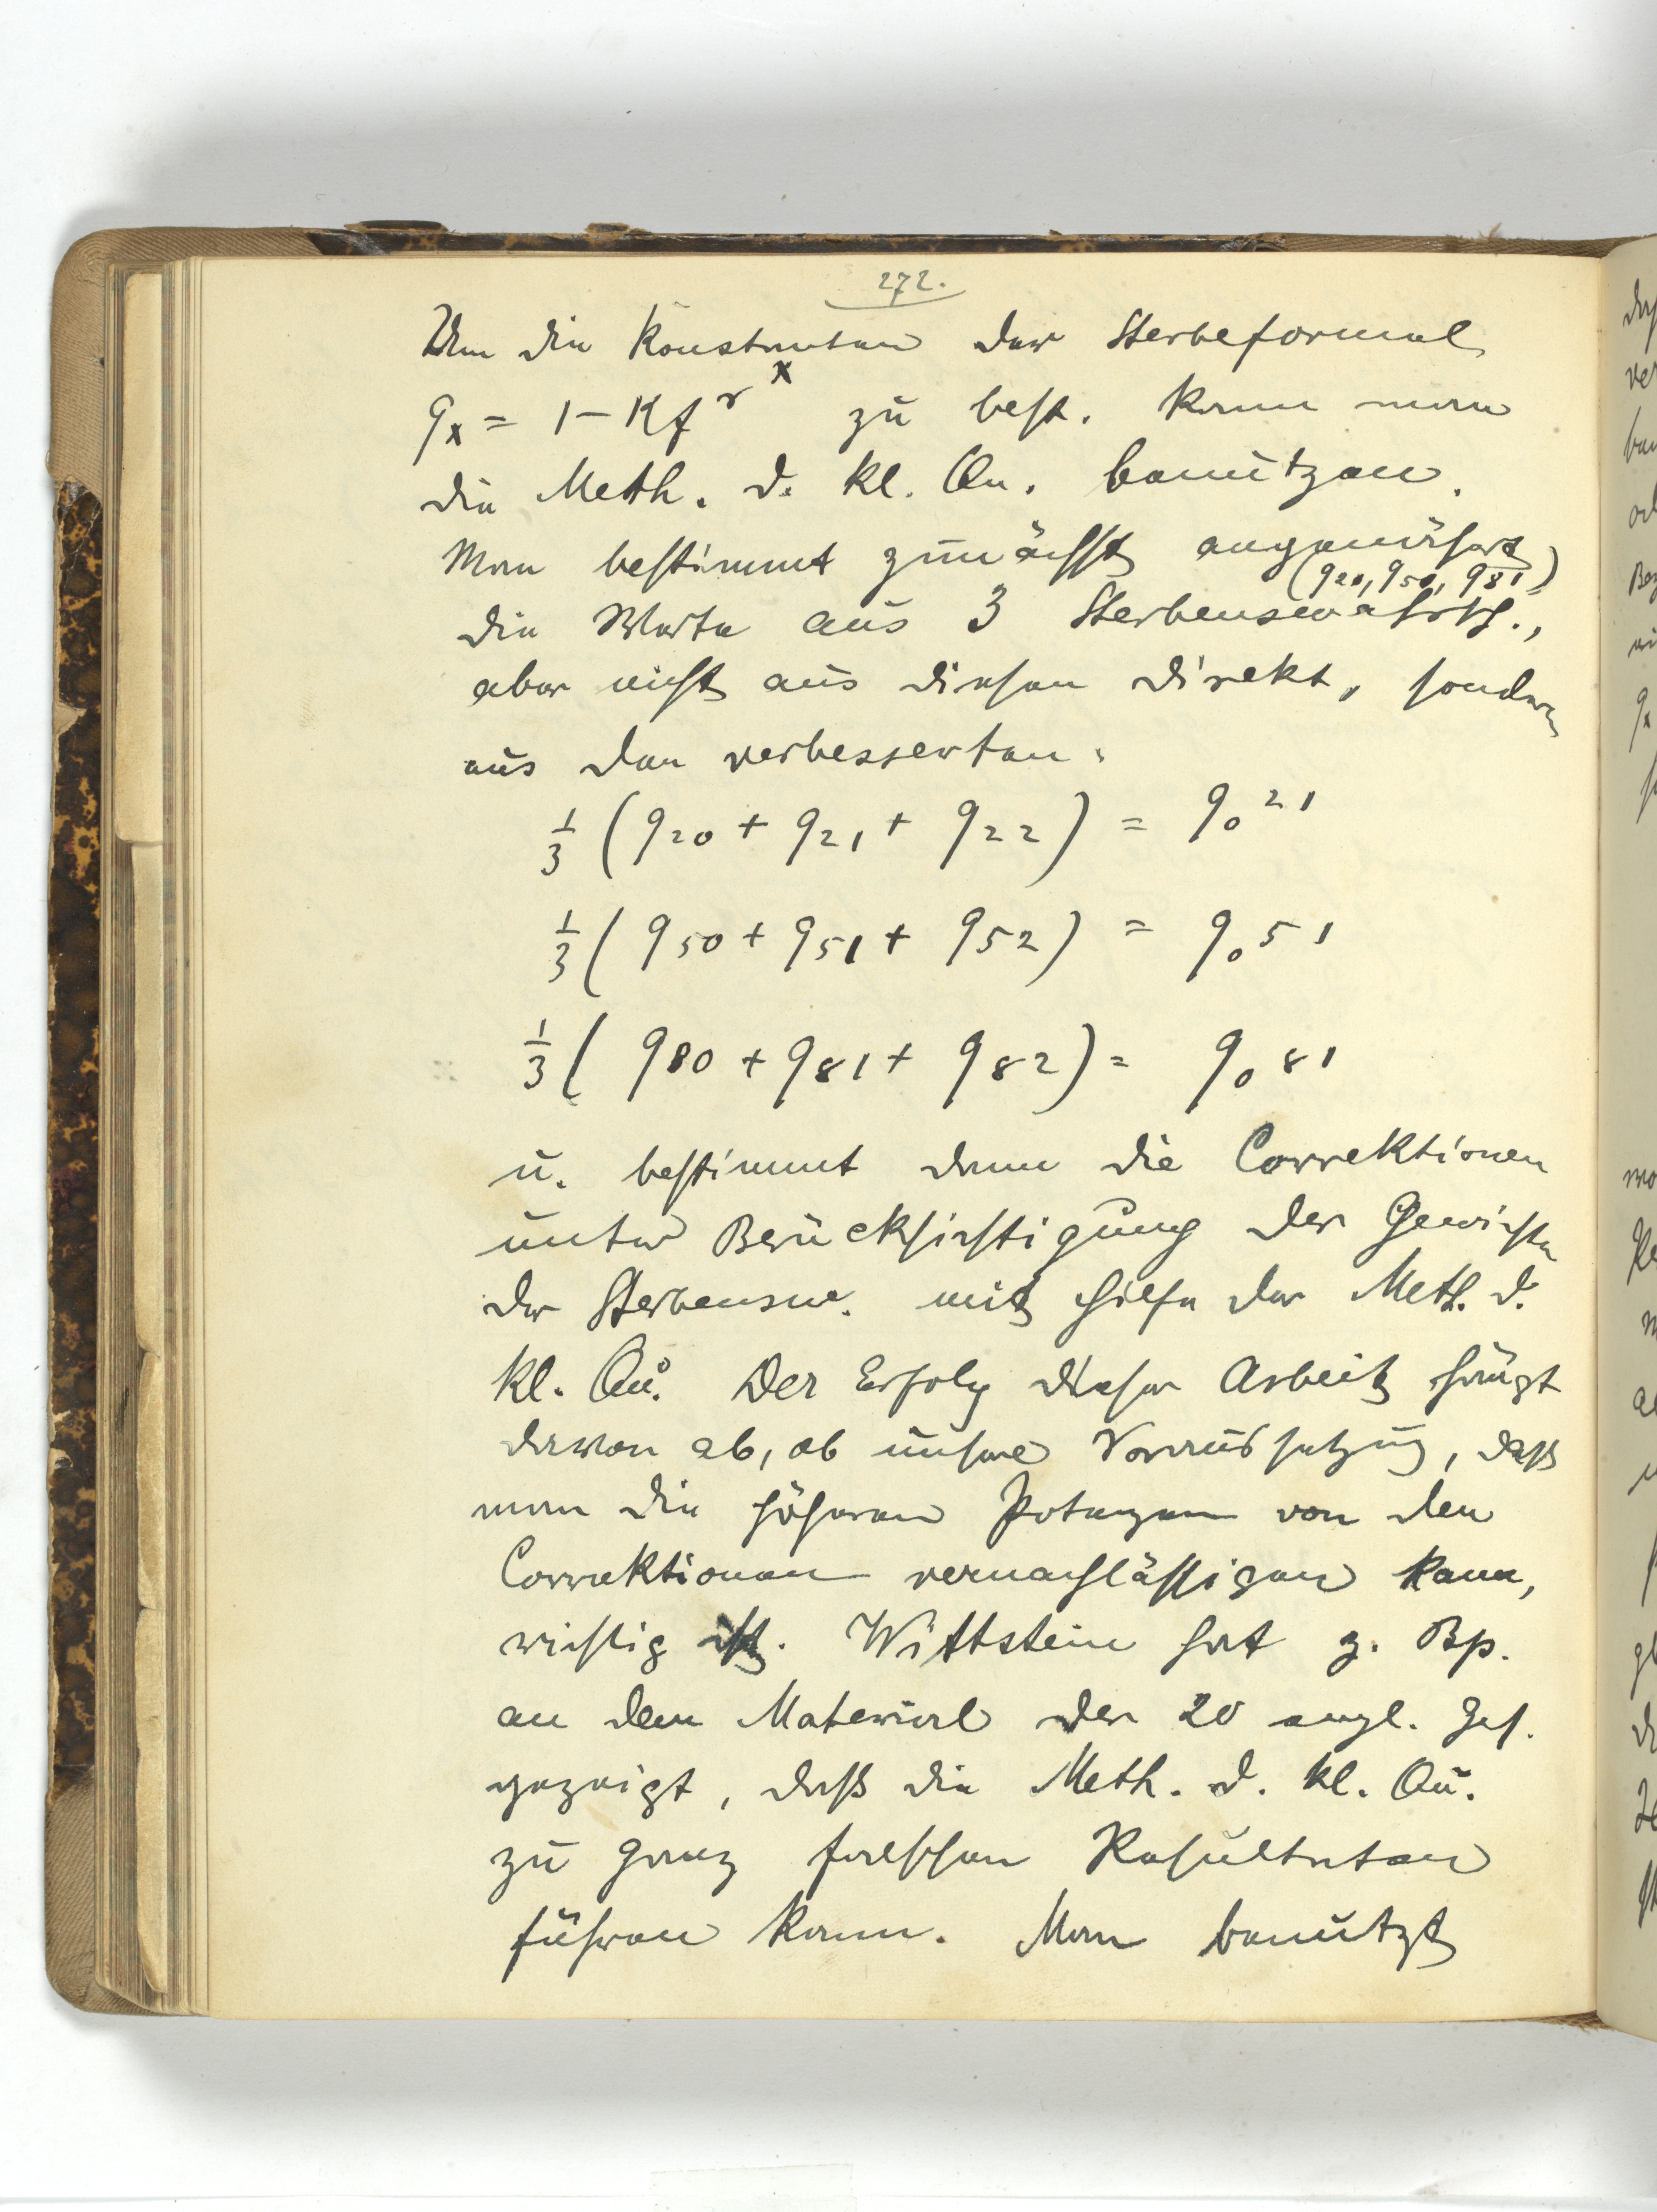 272.
Um die Konstanten der Sterbeformel
q_x = 1 - K f^{r^x} zu best. kann man
die Meth. d. kl. Qu. benützen.
Man bestimmt zunächst angenähert
(q20, q50, q81)
die Werte aus 3 Sterbenswahrsch.,
aber nicht aus diesen direkt, sondern
aus den verbesserten:
1/3 (q20 + q21 + q22) = q0 21
1/3 (q50 + q51 + q52) = q0 51
1/3 (q80 + q81 + q82) = q0 81
u. bestimmt dann die Correktionen
unter Berücksichtigung der Gewichte
der Sterbensw. mit Hilfe der Meth. d.
kl. Qu. Der Erfolg dieser Arbeit hängt
davon ab, ob unsere Voraussetzung, daß
man die höheren Potenzen von den
Correktionen vernachlässigen kann,
richtig ist. Wittstein hat z. Bsp.
an dem Material der 20 engl. Ges.
gezeigt, daß die Meth. d. kl. Qu.
zu ganz falschen Resultaten
führen kann. Man benützt